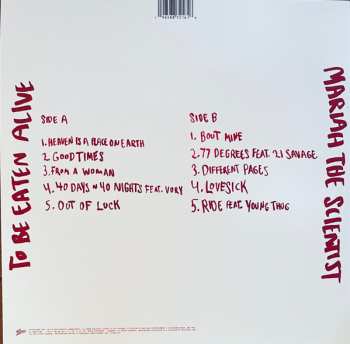 TO BE EATEN ALIVE
SIDE A
1. HEAVEN IS A PLACE ON EARTH
2 GOOD TIMES
3. FROM A WOMAN
4. 40 DAYS N 40 NIGHTS FEAT. VORY
5. OUT OF LUCK
SIDE B
1. BOUT MINE
2. 77 DEGREES FEAT. 21 SAVAGE
3. DIFFERENT PAGES
4. LOVESICK
5. RIDE FEAT. YOUNG THUG
MARIAH THE SCIENTIST
Epic